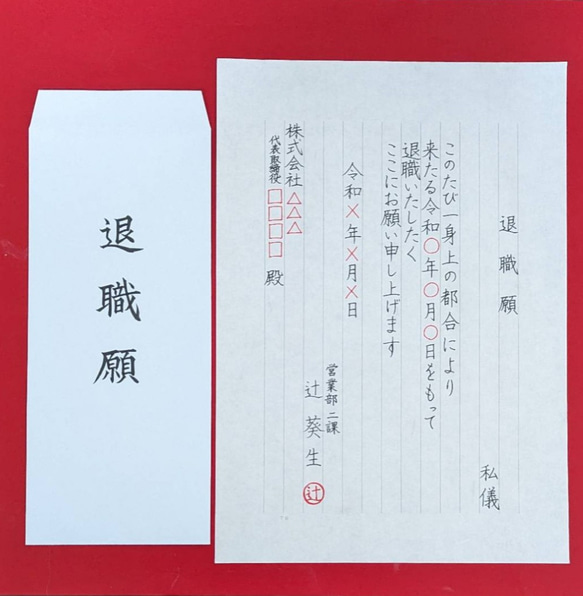 退職願
退職願
私儀
このたび一身上の都合により
来たる令和〇年〇月〇日をもって
退職いたしたく
ここにお願い申し上げます
令和×年×月×日
営業部二課
辻葵生 辻
株式会社△△△
代表取締役□□□□殿